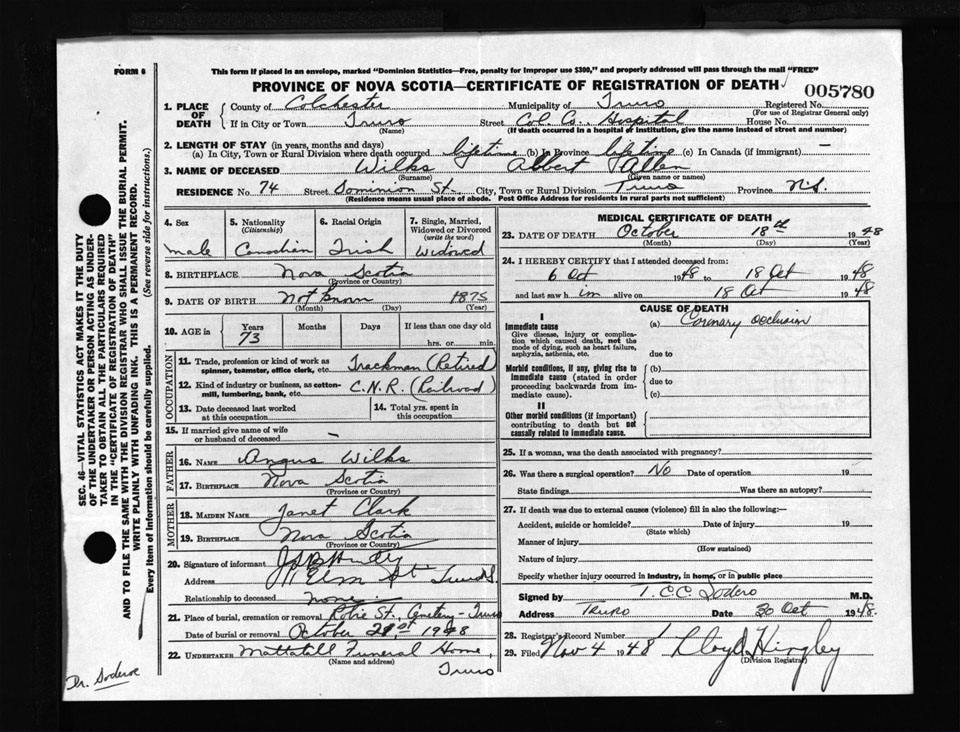 FORM 6
This form if placed in an envelope, marked "Dominion Statistics—Free, penalty for improper use $300," and properly addressed will pass through the mail "FREE"
PROVINCE OF NOVA SCOTIA—CERTIFICATE OF REGISTRATION OF DEATH
005780
1. PLACE OF DEATH
County of Colchester Municipality of Truro Registered No.
(For use of Registrar General only)
If in City or Town Truro Street Col. Co. Hospital House No.
(Name) (If death occurred in a hospital or institution, give the name instead of street and number)
2. LENGTH OF STAY (in years, months and days)
(a) In City, Town or Rural Division where death occurred lifetime (b) In Province lifetime (c) In Canada (if immigrant) —
3. NAME OF DECEASED Wilks Albert Allen
(Surname) (Given name or names)
RESIDENCE No. 74 Street Dominion St. City, Town or Rural Division Truro Province N.S.
(Residence means usual place of abode. Post Office Address for residents in rural parts not sufficient)
4. Sex
male
5. Nationality
(Citizenship)
Canadian
6. Racial Origin
Irish
7. Single, Married, Widowed or Divorced
(write the word)
Widowed
8. BIRTHPLACE Nova Scotia
(Province or Country)
9. DATE OF BIRTH Not known 1875
(Month) (Day) (Year)
10. AGE in Years Months Days If less than one day old
73 hrs. or min.
OCCUPATION
11. Trade, profession or kind of work as spinner, teamster, office clerk, etc. Trackman (Retired)
12. Kind of industry or business, as cotton-mill, lumbering, bank, etc. C.N.R. (Railroad)
13. Date deceased last worked at this occupation
14. Total yrs. spent in this occupation
15. If married give name of wife or husband of deceased —
FATHER
16. NAME Angus Wilks
17. BIRTHPLACE Nova Scotia
(Province or Country)
MOTHER
18. MAIDEN NAME Janet Clark
19. BIRTHPLACE Nova Scotia
(Province or Country)
20. Signature of informant
Address Elm St
Relationship to deceased none
21. Place of burial, cremation or removal Robie St. Cemetery - Truro
Date of burial or removal October 21st 1948
22. UNDERTAKER Mattatall Funeral Home,
(Name and address) Truro
MEDICAL CERTIFICATE OF DEATH
23. DATE OF DEATH October 18th 1948
(Month) (Day) (Year)
24. I HEREBY CERTIFY that I attended deceased from:
6 Oct 1948 to 18 Oct 1948
and last saw him alive on 18 Oct 1948
CAUSE OF DEATH
I
Immediate cause
Give disease, injury or complication which caused death, not the mode of dying, such as heart failure, asphyxia, asthenia, etc.
(a) Coronary occlusion
due to
Morbid conditions, if any, giving rise to immediate cause (stated in order proceeding backwards from immediate cause).
(b)
due to
(c)
II
Other morbid conditions (if important) contributing to death but not causally related to immediate cause.
25. If a woman, was the death associated with pregnancy?
26. Was there a surgical operation? No Date of operation 19
State findings Was there an autopsy?
27. If death was due to external causes (violence) fill in also the following:—
Accident, suicide or homicide? Date of injury 19
(State which)
Manner of injury
(How sustained)
Nature of injury
Specify whether injury occurred in industry, in home, or in public place
Signed by T. C. C. Sodero M.D.
Address Truro Date 30 Oct 1948.
28. Registrar's Record Number
29. Filed Nov 4 1948 Lloyd Hingley
(Division Registrar)
SEC. 46—VITAL STATISTICS ACT MAKES IT THE DUTY
OF THE UNDERTAKER OR PERSON ACTING AS UNDER-
TAKER TO OBTAIN ALL THE PARTICULARS REQUIRED
IN THE "CERTIFICATE OF REGISTRATION OF DEATH"
AND TO FILE THE SAME WITH THE DIVISION REGISTRAR WHO SHALL ISSUE THE BURIAL PERMIT.
WRITE PLAINLY WITH UNFADING INK. THIS IS A PERMANENT RECORD.
Every item of information should be carefully supplied. (See reverse side for instructions.)
Dr. Soderoe